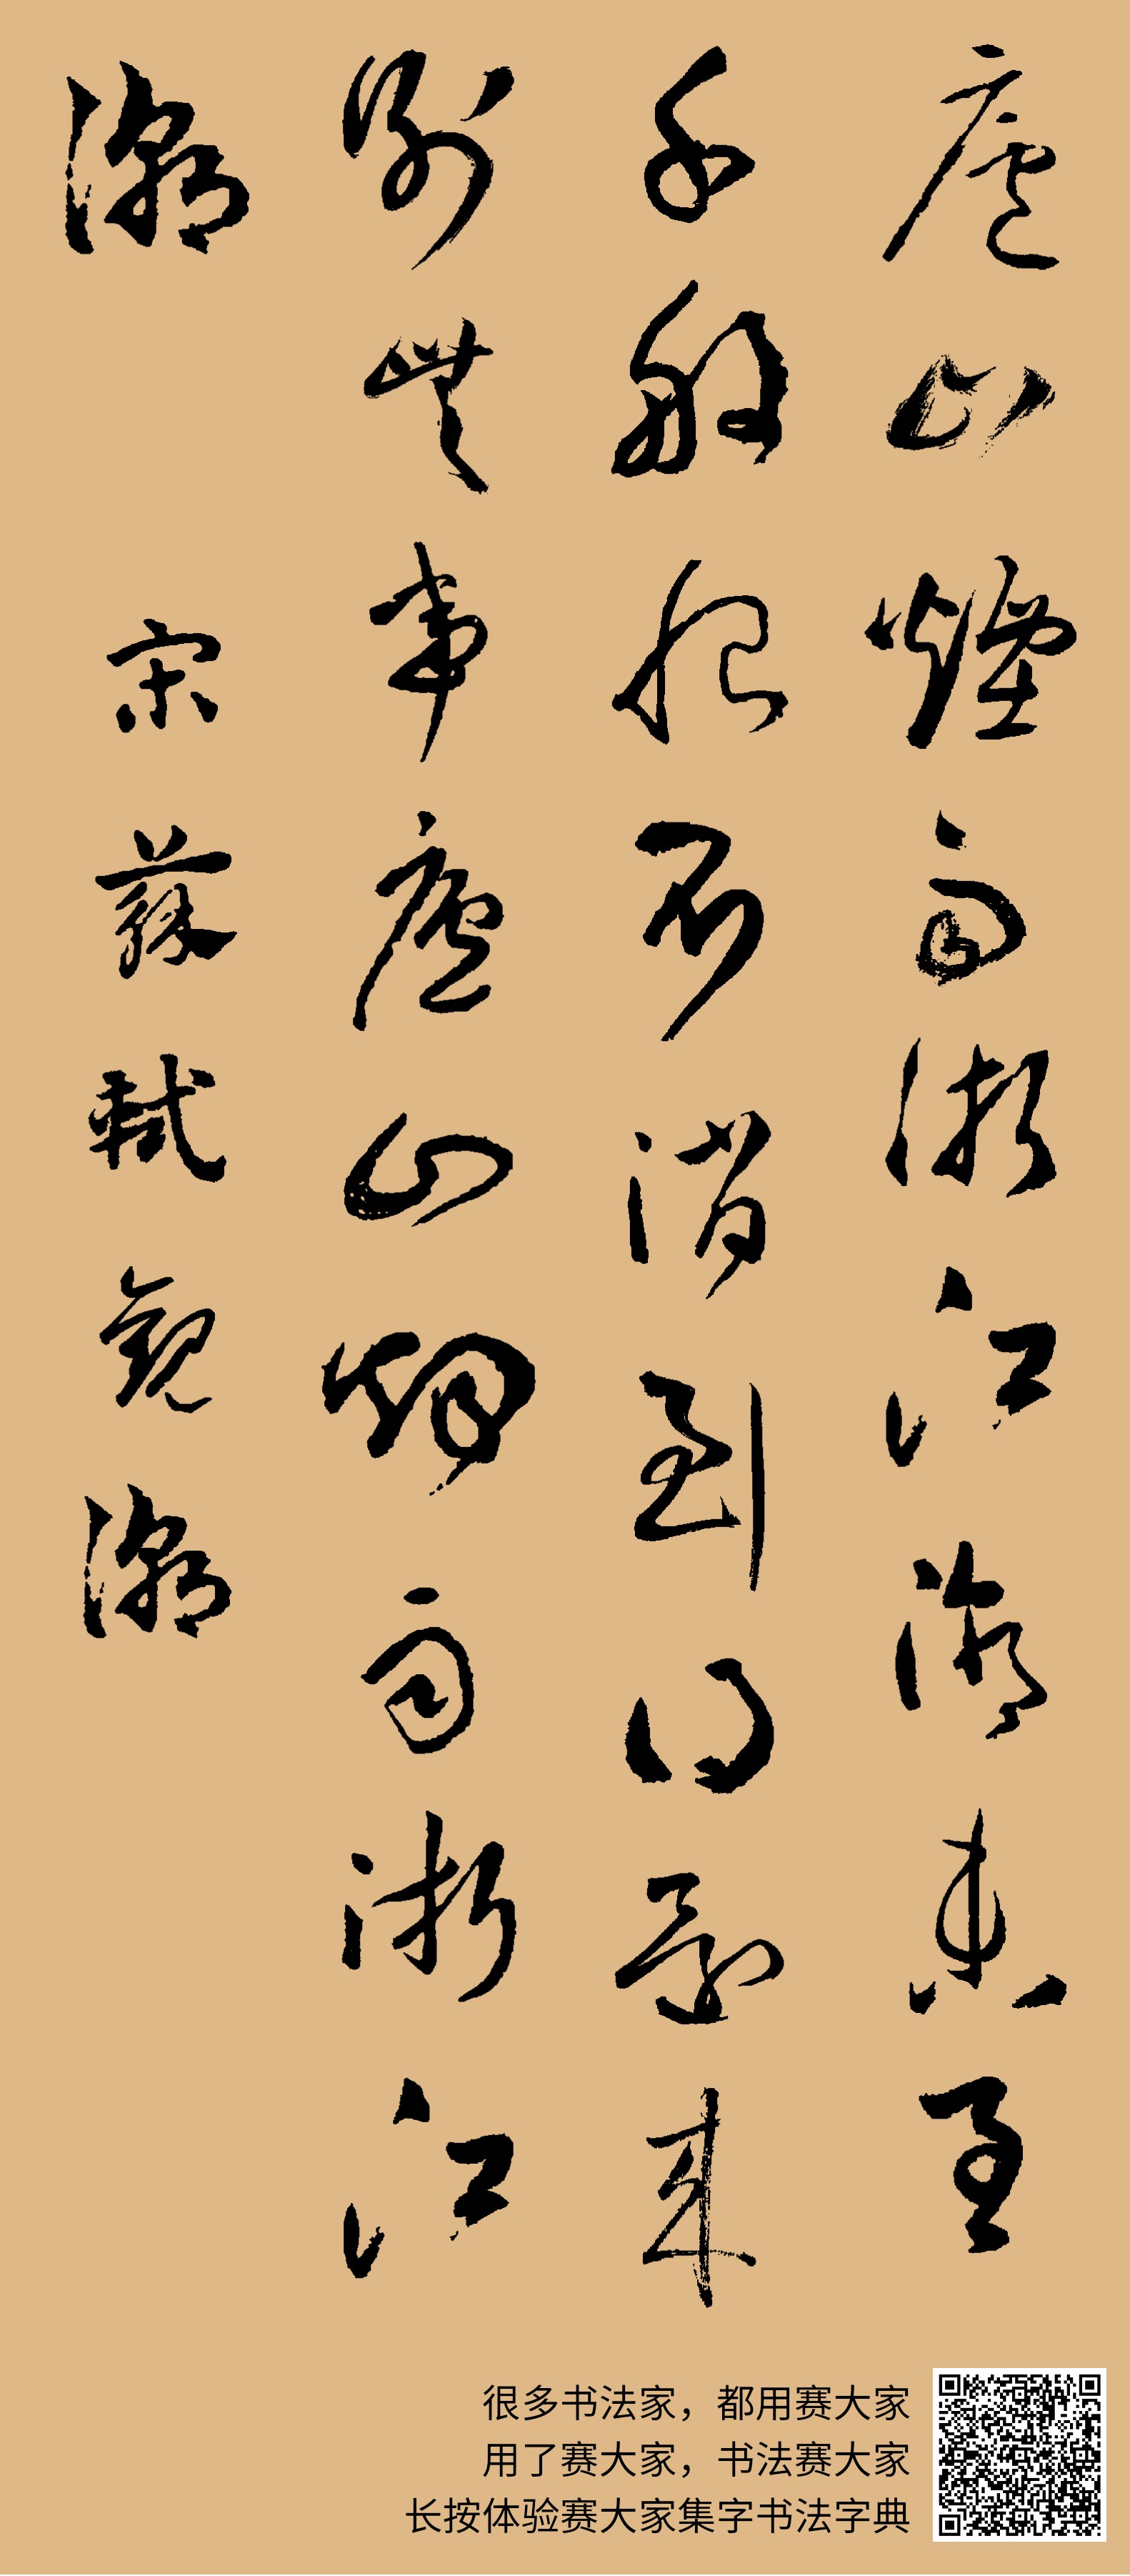 廬山煙雨浙江潮未至
千般恨不消到得還來
別無事廬山烟雨浙江
潮
宋蘇軾觀潮
很多书法家，都用赛大家
用了赛大家，书法赛大家
长按体验赛大家集字书法字典